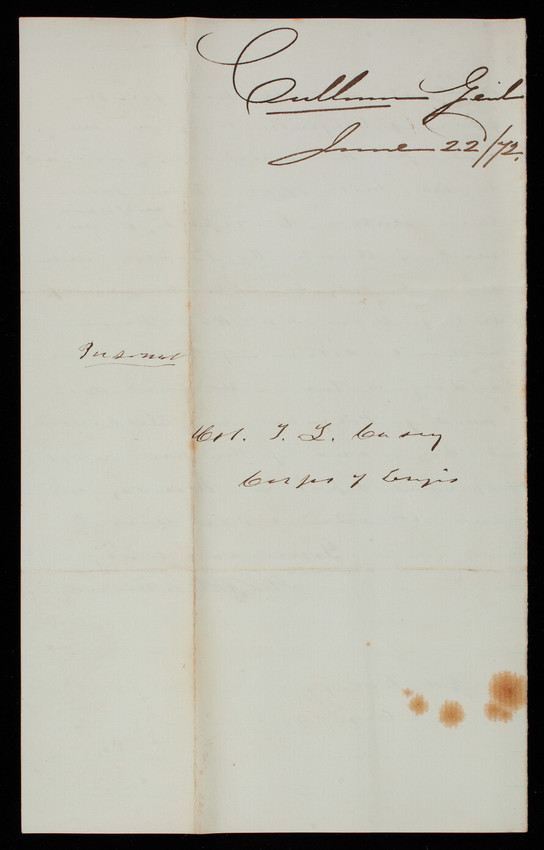 Cullum Genl
June 22/72.
Personal
Col. T. L. Casey
Corps of Engrs